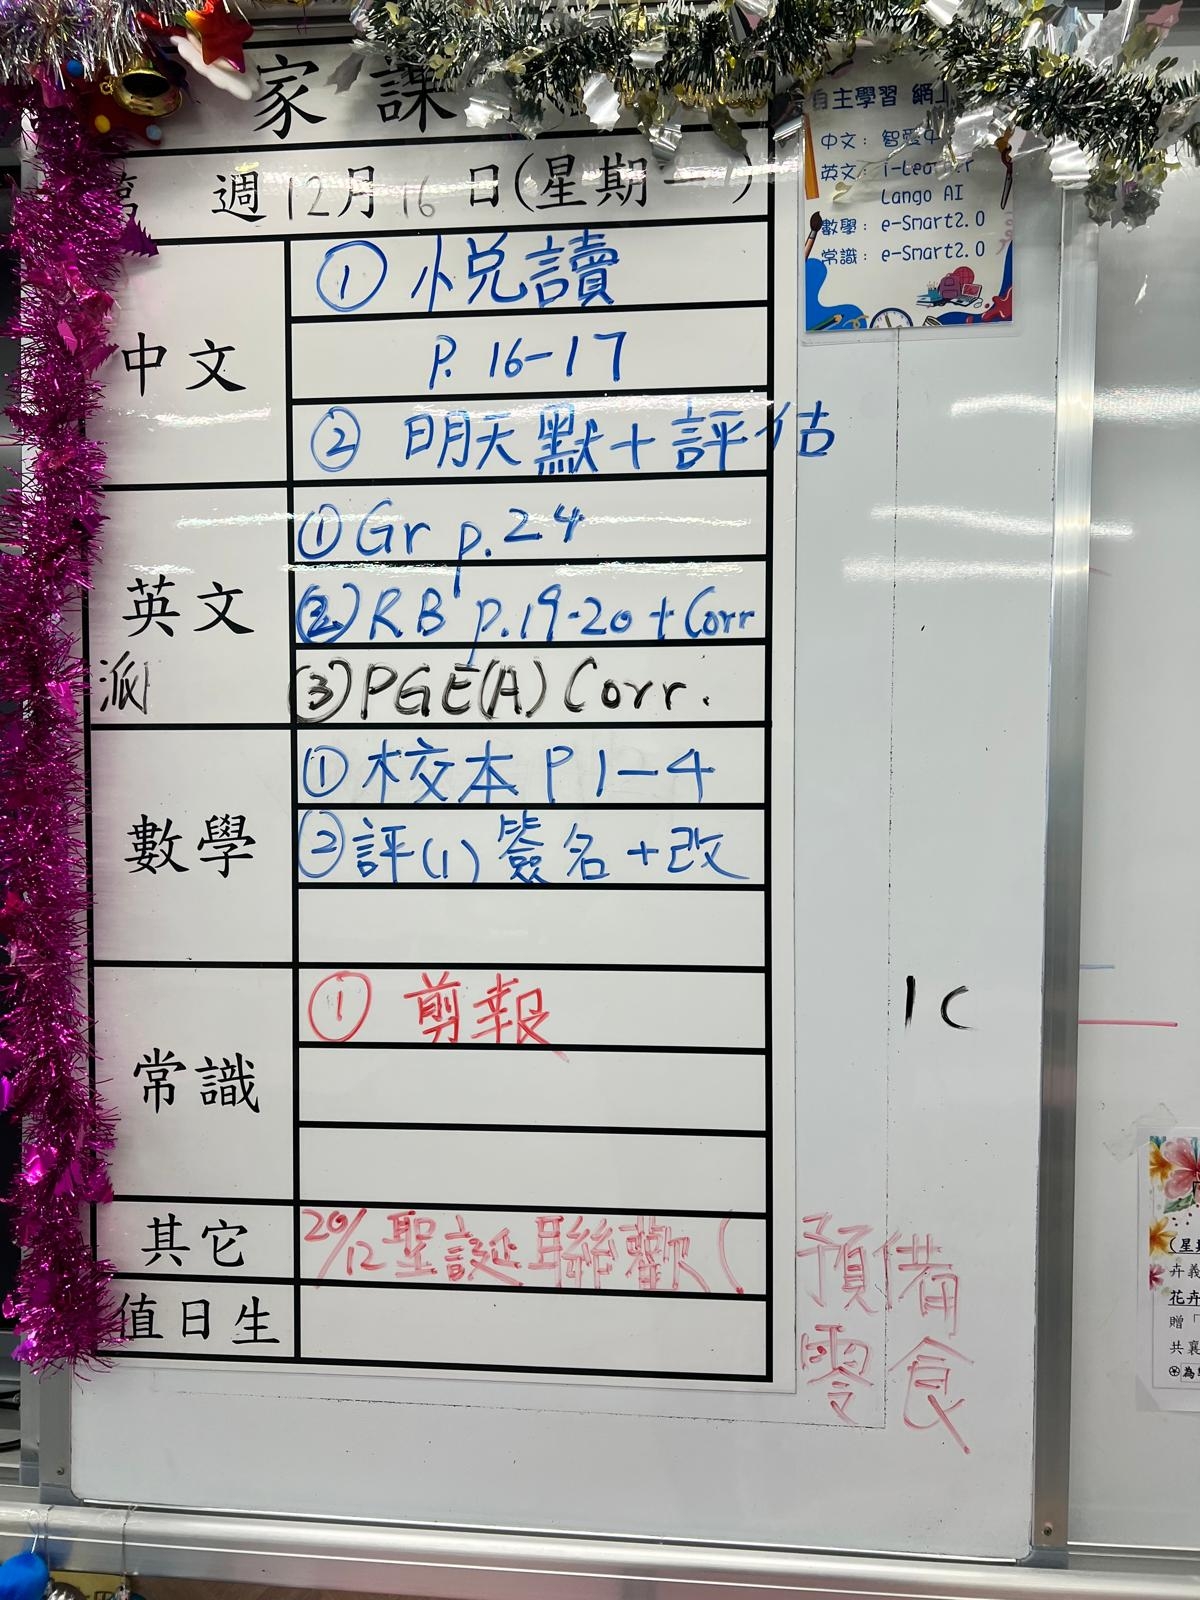 家課
週 12月 16 日(星期一)
中文
① 悅讀
P. 16-17
② 明天默+評估
英文
派
① Gr p.24
② RB p.19-20 + Corr
③ PGE(A) Corr.
數學
① 校本 P 1-4
② 評(1) 簽名+改
常識
① 剪報
其它
20/12 聖誕聯歡( 預備
零食
值日生
1C
自主學習 網
中文: 智愛
英文: i-Lea
Lango AI
數學: e-Smart2.0
常識: e-Smart2.0
(星
卉義
花卉
贈「
共襄